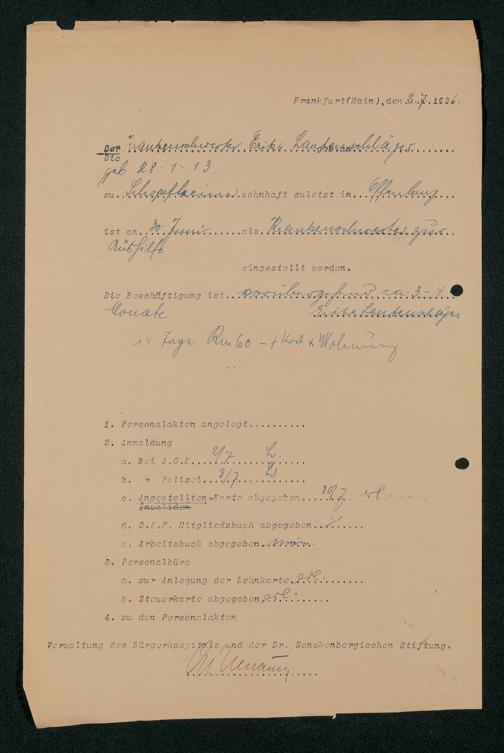 Frankfurt(Main),den 2.7.1936.
Der Krankenschwester Erika Lautenschläger
Die
geb 28-1-13
zu Schopfheim wohnhaft zuletzt in Offenburg
ist am 30 Juni als Krankenschwester zur
Aushilfe
eingestellt worden.
Die Beschäftigung ist vorübergehend ca 3-4
Monate
14 Tage Rm 60 + Kost & Wohnung
1. Personalakten angelegt..........
2. Anmeldung
a. Bei A.O.K. 2/7
b. " Polizei 3/7
c. Angestellten-Karte abgegeben
Invaliden
d. D.A.F. Mitgliedsbuch abgegeben
e. Arbeitsbuch abgegeben
3. Personalbüro
a. zur Anlegung der Lohnkarte erl.
b. Steuerkarte abgegeben erl.
4. zu den Personalakten
Verwaltung des Bürgerhospitals und der Dr. Senckenbergischen Stiftung.